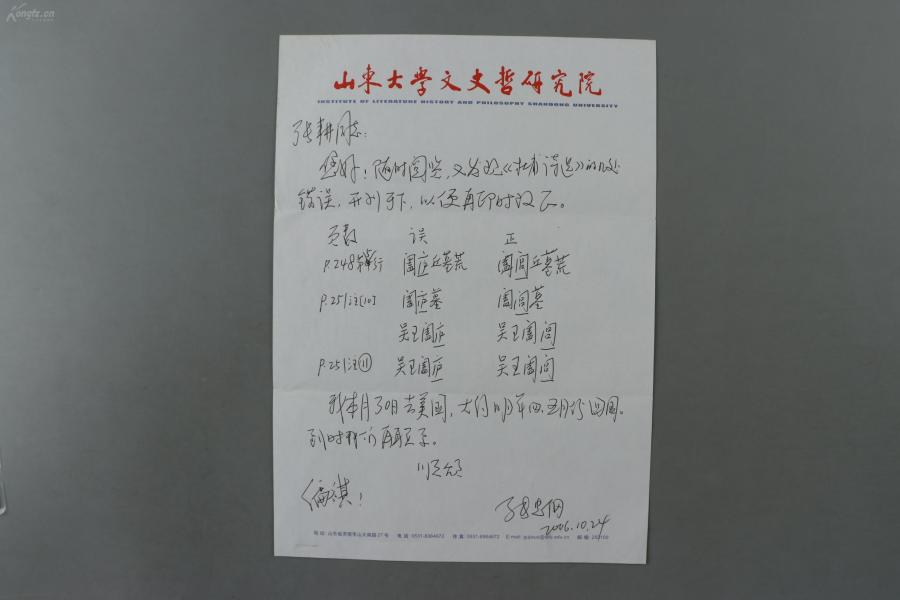 Kongfz.cn
山東大學文史哲研究院
INSTITUTE OF LITERATURE HISTORY AND PHILOSOPHY SHANDONG UNIVERSITY
张耕同志：
您好！随时阅览，又发现《杜甫诗选》的几处
错误，开列于下，以便再印时改正。
页数 误 正
P.248 行 阖庐丘墓荒 阖闾丘墓荒
P.251注[10] 阖庐墓 阖闾墓
吴王阖庐 吴王阖闾
P.251注⑪ 吴王阖庐 吴王阖闾
我本月30日去美国，大约明年四、五月份回国。
到时我们再联系。
顺颂
编祺！
张忠纲
2006.10.24
地址：山东省济南市山大南路27号 电话：0531-8364672 传真：0531-8364672 E-mail: 邮编：250100